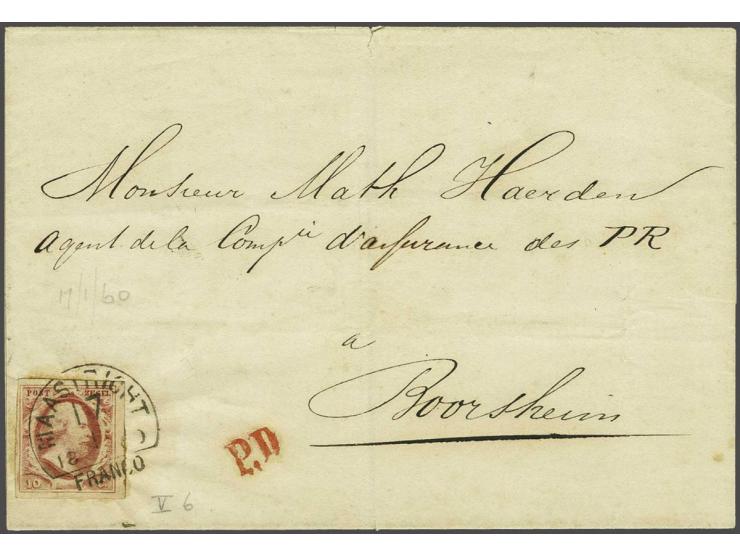 Monsieur Math Haerden
Agent de la Compie d'assurance des PR
17/1/60
a
Boorsheim
POST ZEGEL
MAASTRICHT
17
18
FRANCO
10
P.D
V 6